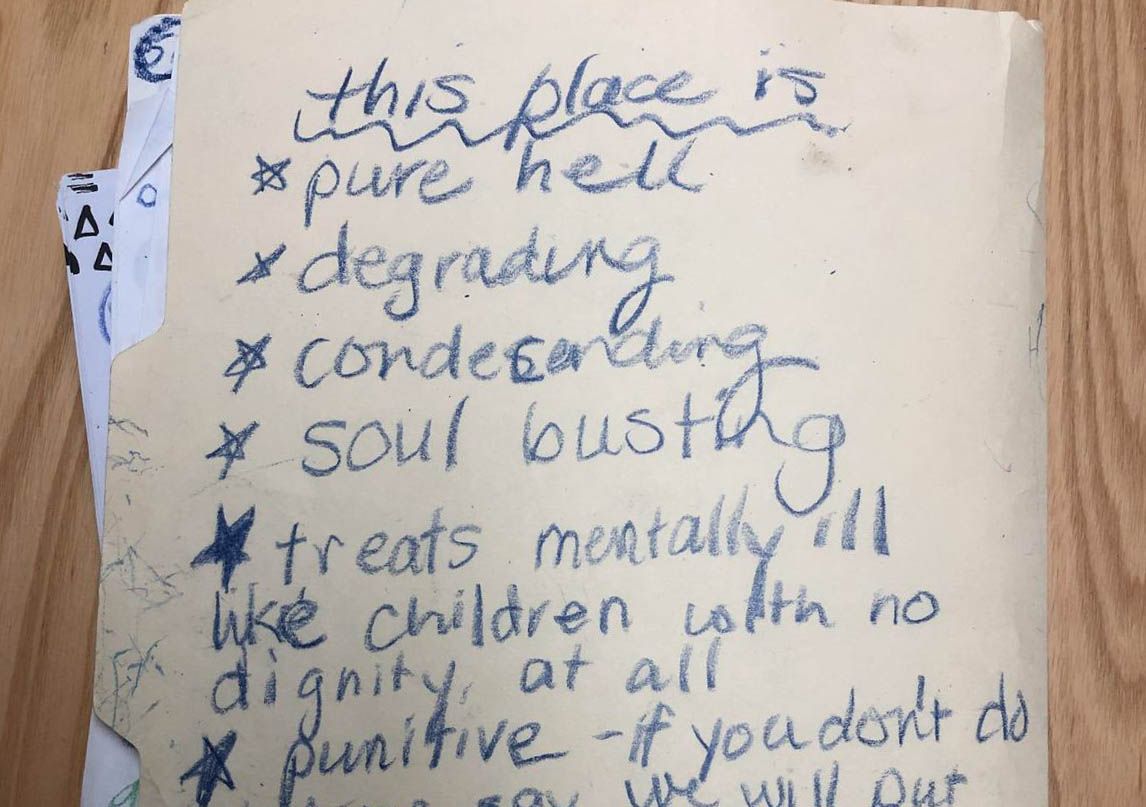 this place is
* pure hell
* degrading
* condecending
* soul busting
* treats mentally ill
like children with no
dignity, at all
* punitive - if you don't do
say we will put